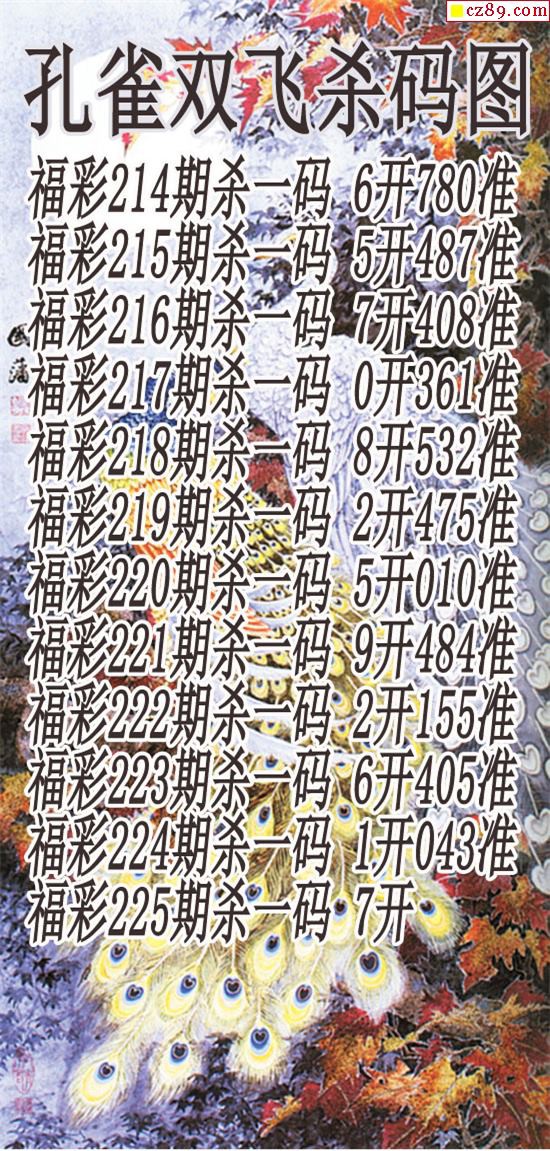 cz89.com
孔雀双飞杀码图
福彩214期杀一码 6开780准
福彩215期杀一码 5开487准
福彩216期杀一码 7开408准
福彩217期杀一码 0开361准
福彩218期杀一码 8开532准
福彩219期杀一码 2开475准
福彩220期杀一码 5开010准
福彩221期杀一码 9开484准
福彩222期杀一码 2开155准
福彩223期杀一码 6开405准
福彩224期杀一码 1开043准
福彩225期杀一码 7开